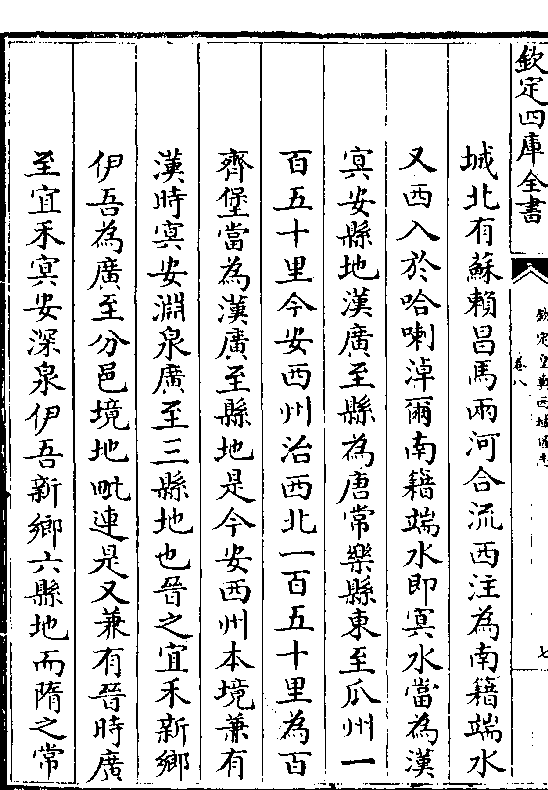 欽定四庫全書
欽定皇輿西域圖志
卷八
七
城北有蘇賴昌馬兩河合流西注為南籍端水
又西入於哈喇淖爾南籍端水即冥水當為漢
冥安縣地漢廣至縣為唐常樂縣東至瓜州一
百五十里今安西州治西北一百五十里為百
齊堡當為漢廣至縣地是今安西州本境兼有
漢時冥安淵泉廣至三縣地也晉之宜禾新鄉
伊吾為廣至分邑境地毗連是又兼有晉時廣
至宜禾冥安深泉伊吾新鄉六縣地而隋之常